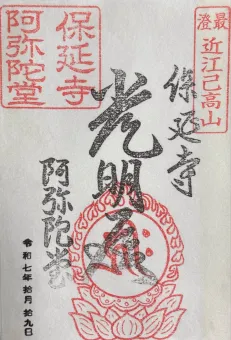 最澄
近江己高山
保延寺
阿弥陀堂
保延寺
光明
阿弥陀堂
令和七年拾月拾九日